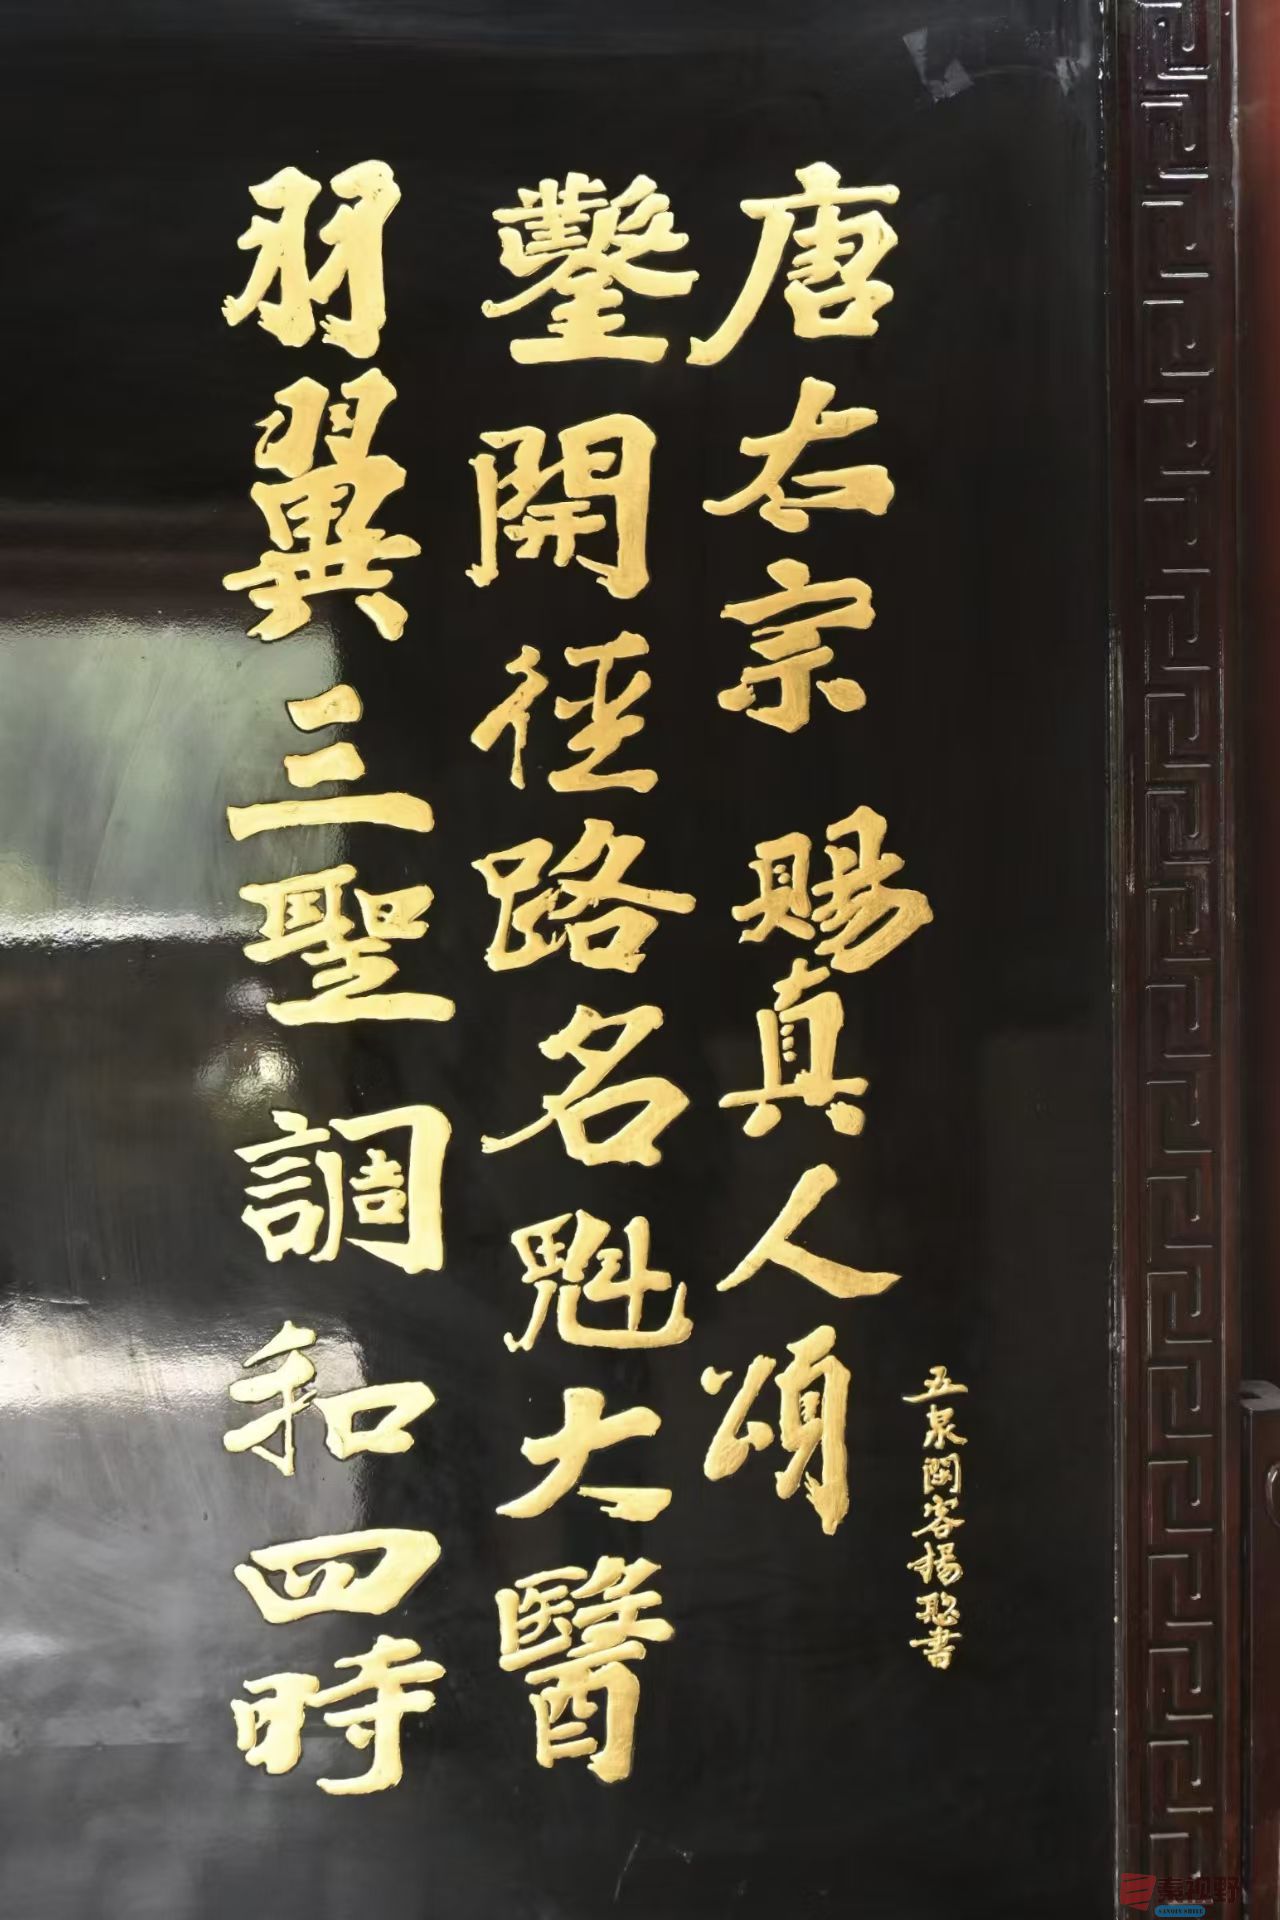 唐太宗 賜真人頌
鑿開徑路名魁大醫
羽翼三聖調和四時
五泉閣客楊聪書
秦视野